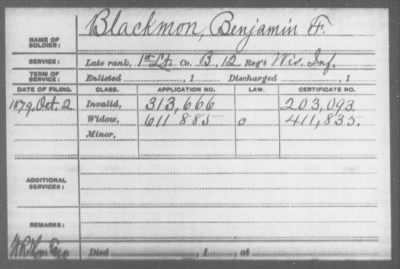 Blackmon, Benjamin F.
NAME OF SOLDIER:
SERVICE: Late rank, 1st Lt. Co. B, 12 Reg't Wis. Inf.
TERM OF SERVICE: Enlisted , 1 Discharged , 1
DATE OF FILING. CLASS. APPLICATION NO. LAW. CERTIFICATE NO.
1879, Oct. 2 Invalid, 313,666 203,093
Widow, 611885 o 411,835.
Minor,
ADDITIONAL SERVICES:
REMARKS:
Died , 1 , at